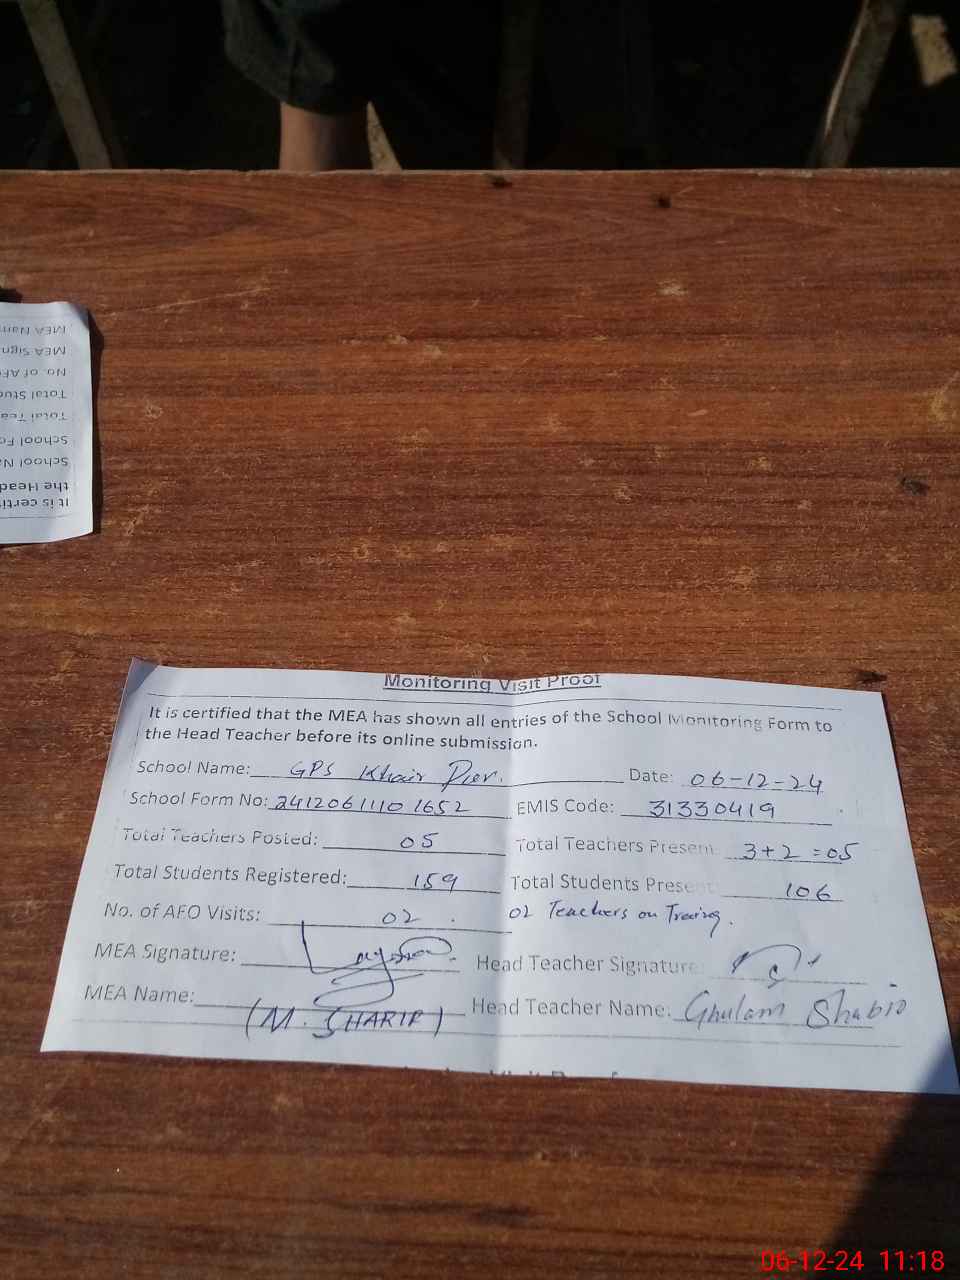 MEA Nam
MEA Sign
No. of AF
Total Stud
Total Tea
School Fo
School Na
the Head
It is certi
Monitoring Visit Proof
It is certified that the MEA has shown all entries of the School Monitoring Form to
the Head Teacher before its online submission.
School Name: GPS Khair Date: 06-12-24
School Form No: 2412061110 1652 EMIS Code: 31330419
Total Teachers Posted: 05 Total Teachers Present 3+2 =05
Total Students Registered: 159 Total Students Present 106
No. of AFO Visits: 02 . 02 Teachers on
MEA Signature: Head Teacher Signature:
MEA Name: (M. SHARIF) Head Teacher Name: Ghulam
06-12-24 11:18